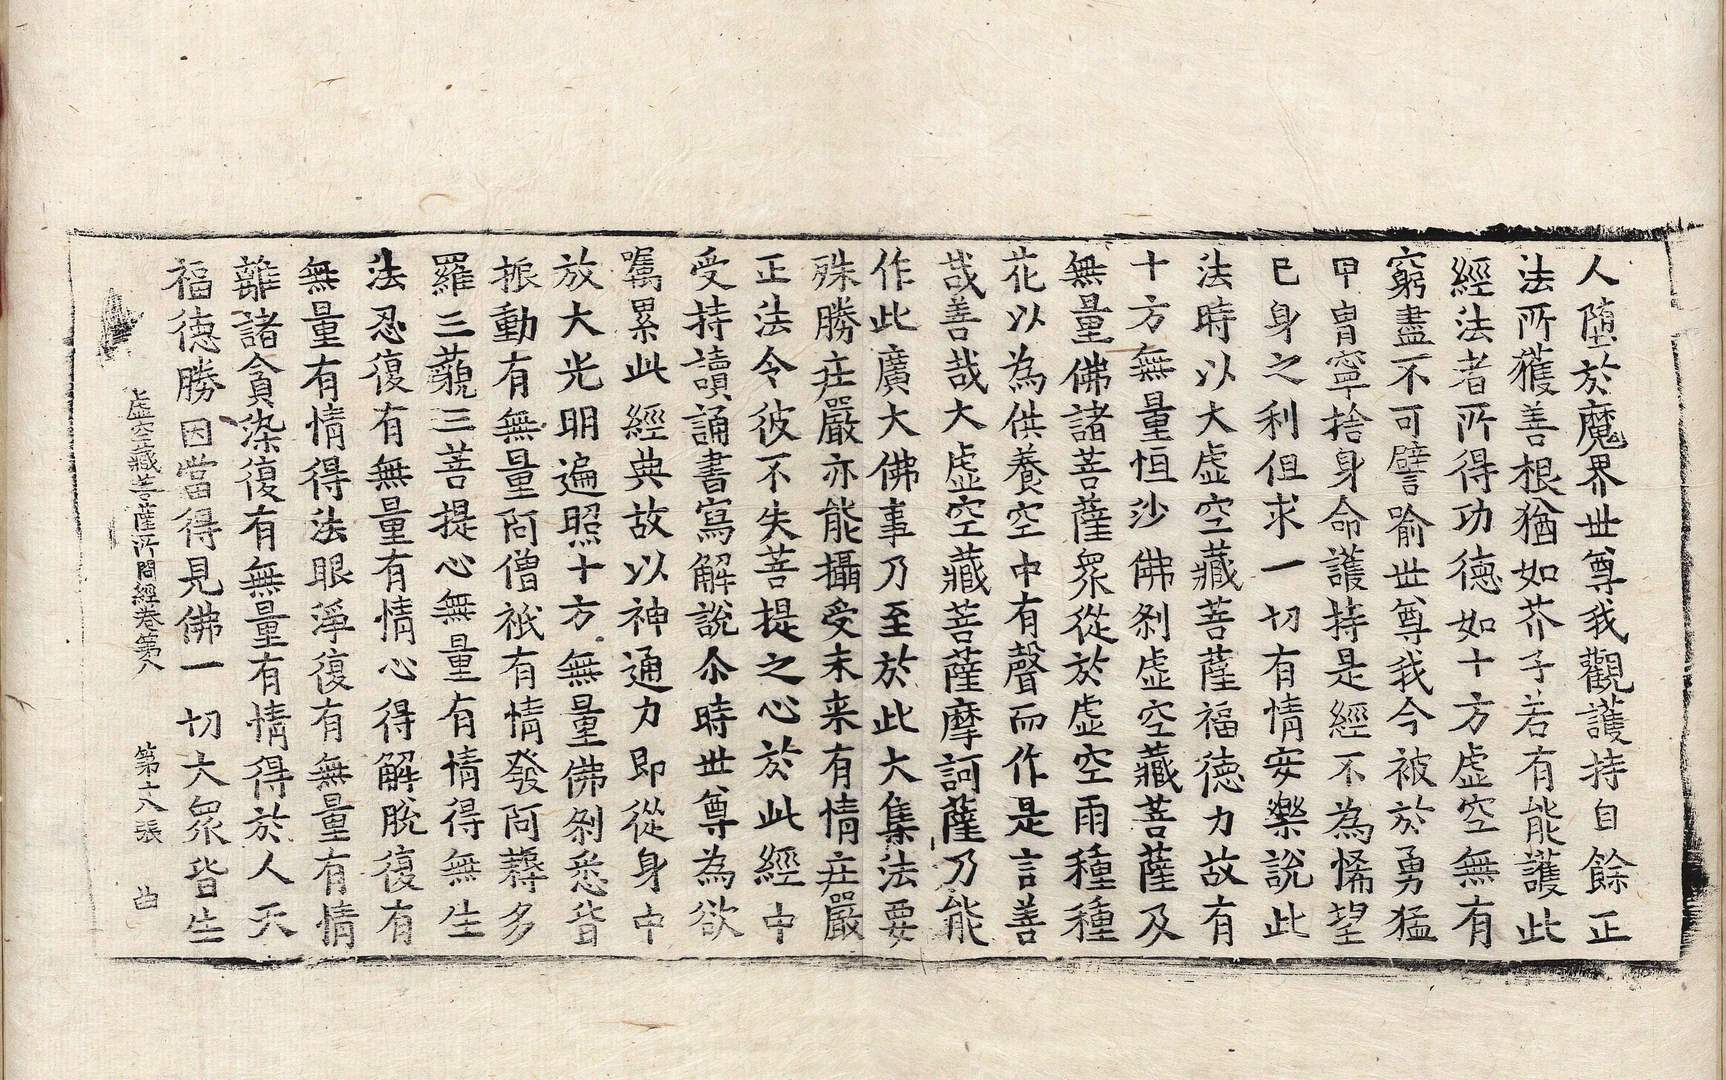 人墮於魔界世尊我觀護持自餘正
法所獲善根猶如芥子若有能護此
經法者所得功德如十方虛空無有
窮盡不可譬喻世尊我今被於勇猛
甲冑寧捨身命護持是經不為悕望
已身之利但求一切有情安樂說此
法時以大虛空藏菩薩福德力故有
十方無量恒沙佛剎虛空藏菩薩及
無量佛諸菩薩眾從於虛空雨種種
花以為供養空中有聲而作是言善
哉善哉大虛空藏菩薩摩訶薩乃能
作此廣大佛事乃至於此大集法要
殊勝庄嚴亦能攝受未来有情庄嚴
正法令彼不失菩提之心於此經中
受持讀誦書寫解說尒時世尊為欲
囑累此經典故以神通力即從身中
放大光明遍照十方無量佛剎悉皆
振動有無量阿僧祇有情發阿耨多
羅三藐三菩提心無量有情得無生
法忍復有無量有情心得解脫復有
無量有情得法眼淨復有無量有情
離諸貪染復有無量有情得於人天
福德勝因當得見佛一切大眾皆生
虛空藏菩薩所問經卷第八 第十八張 曲